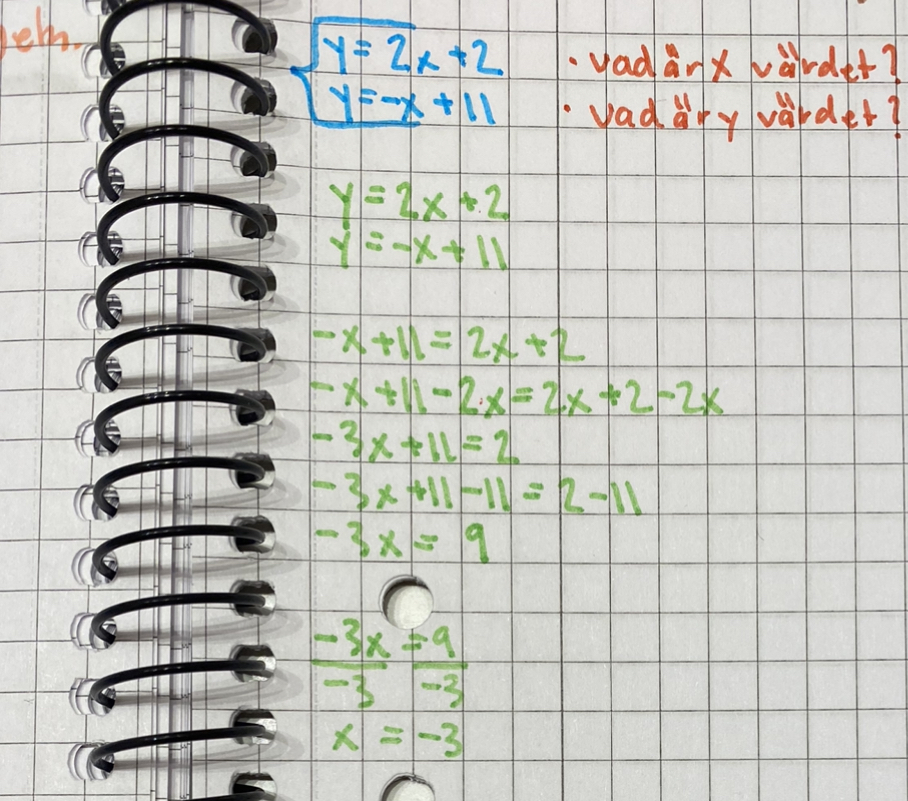 y = 2x + 2
y = -x + 11
• vad är x värdet?
• vad är y värdet?
y = 2x + 2
y = -x + 11
-x + 11 = 2x + 2
-x + 11 - 2x = 2x + 2 - 2x
-3x + 11 = 2
-3x + 11 - 11 = 2 - 11
-3x = 9
-3x = 9
-3 -3
x = -3